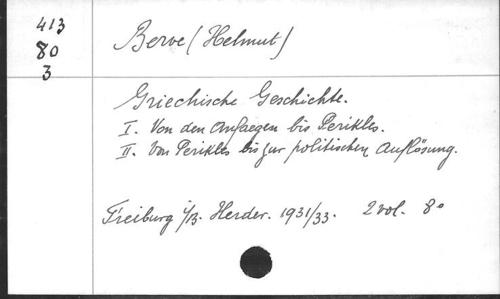 413
80
3
Berve (Helmut)
Griechische Geschichte.
I. Von den Anfaegen bis Perikles.
II. Von Perikles bis zur politischen Auflösung.
Freiburg i/B. Herder. 1931/33. 2 vol. 8°